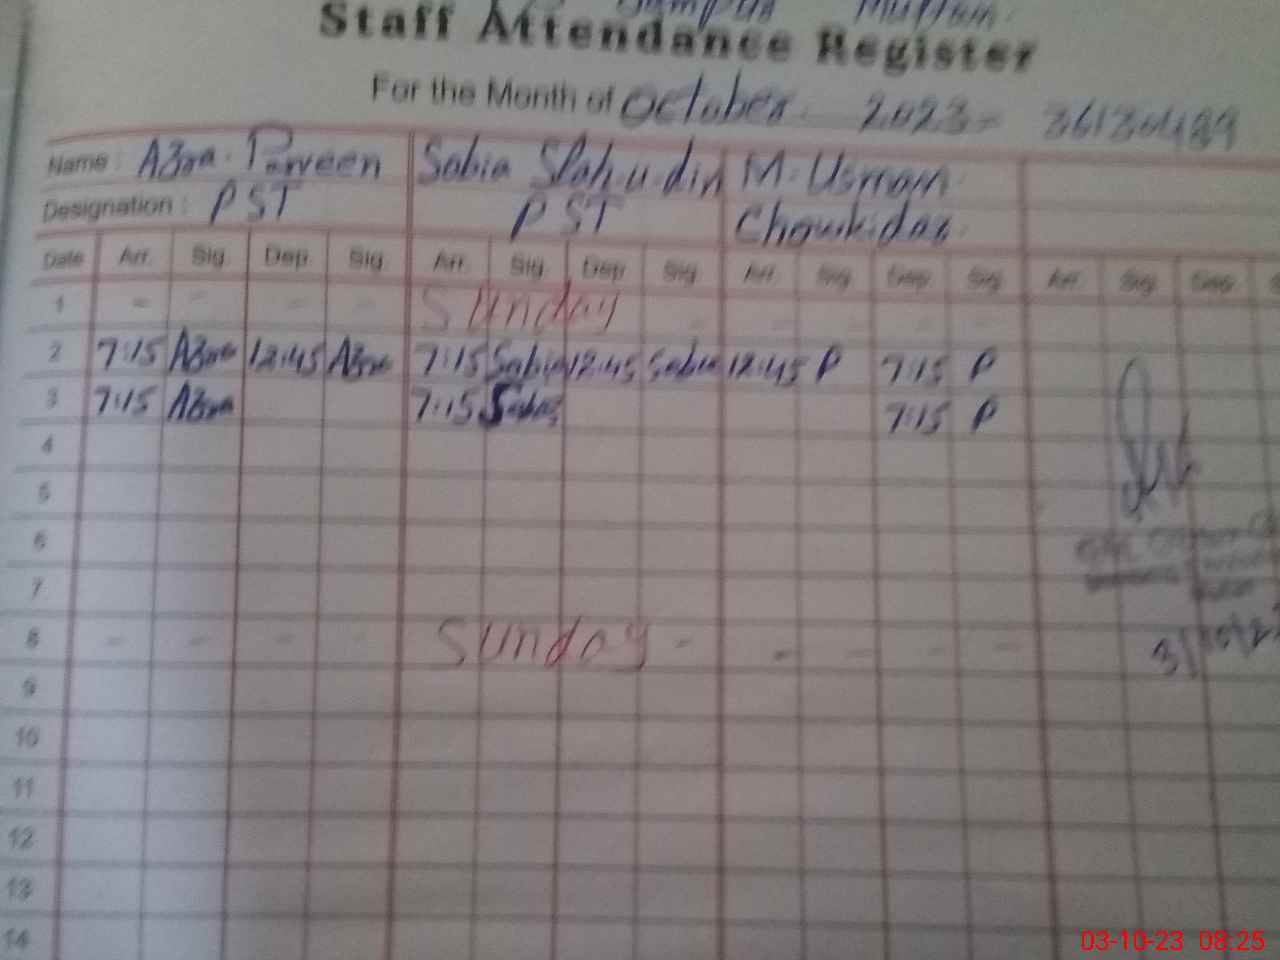 Campus Multan.
Staff Attendance Register
For the Month of October. 2023= 36130489
Name : Azra. Parveen Sobia Slahudin M. Usman.
Designation : PST PST Chowkidar.
Date Arr. Sig. Dep. Sig. Arr. Sig. Dep. Sig. Arr. Sig. Dep. Sig. Arr. Sig. Dep.
1 - - - - Sunday - - - - -
2 7:15 Azra 12:45 Azra 7:15 Sobia 12:45 Sobia 12:45 P 7:15 P
3 7:15 Azra 7:15 Sobia 7:15 P
4
5
6
7
8 - - - - Sunday - - - - -
3/10/23
9
10
11
12
13
14
03-10-23 08:25